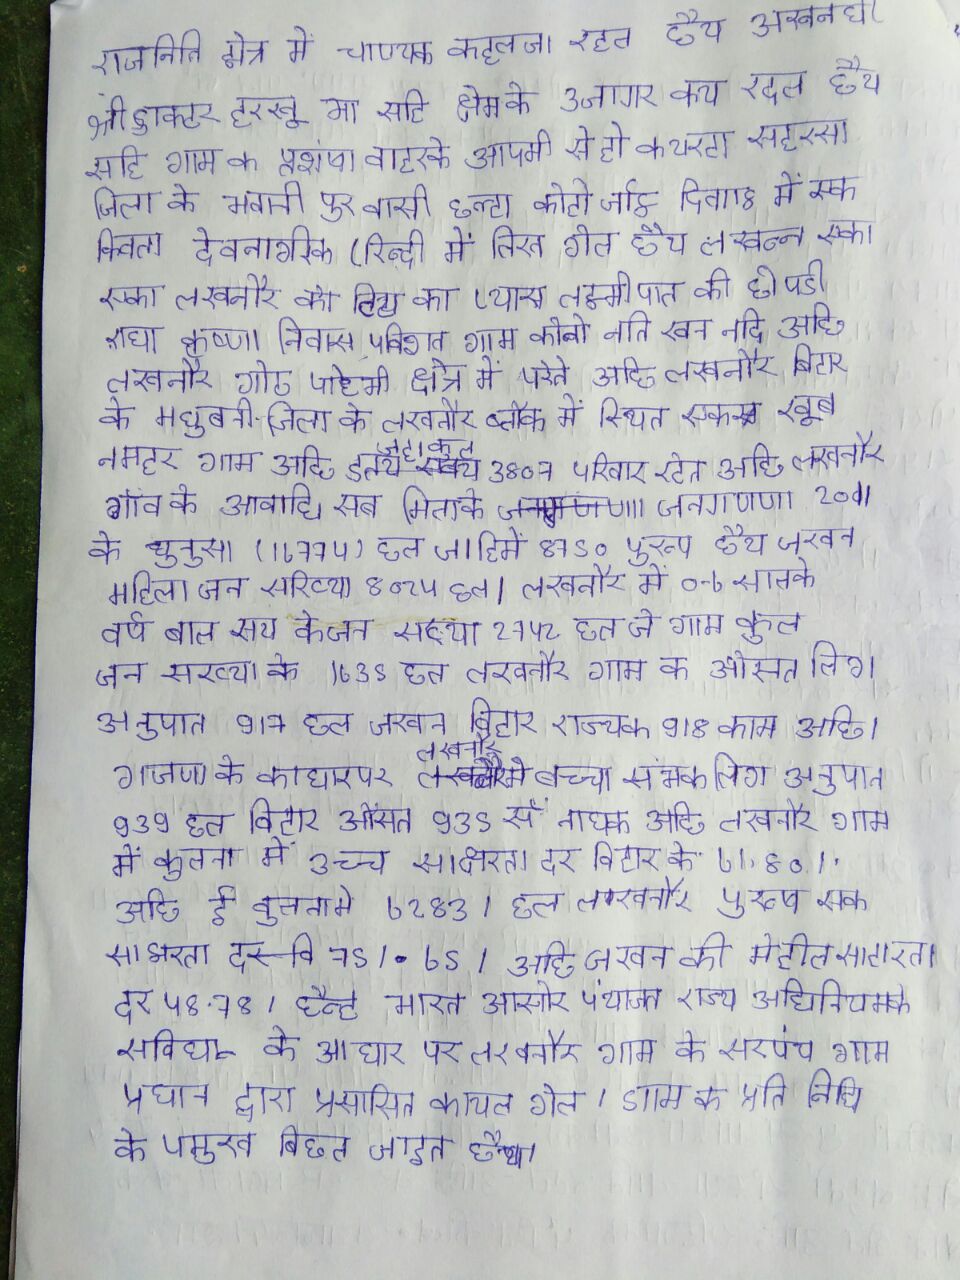 राजनिति क्षेत्र में चाणयक कहलजा रहल छैय अखनधरि
श्री डाकटर हरखू झा सहि क्षेमके उजागर कय रहल छैय
सहि गाम क प्रशंषा वाहरके आपमी से हो कयरहा सहरसा
जिला के भवानी पुर वासी छन्हा कोटो में एक
कविता देवनागरिक (हिन्दी में लिखल गेल छैय लखन्न एका
एका लखनौर की का प्यास लक्ष्मीपति की छोपडी
राधा कृष्णा निवास, गाम कोनो नति खन नदि अछि
लखनौर गोठ पाहेमी क्षेत्र में परैते अछि लखनौर बिहार
के मधुबनी जिला के लखनौर ब्लॉक में स्थित एक खूब
नमहर गाम अछि इतय जहाकुल 3807 परिवार रहेत अछि लखनौर
गाँव के आवादि सब मिलाके जनगणणा 2011
के धुनुसा (16774) छल जाहिमें 8750 पुरूष छैय जखन
महिला जन संख्या 8024 छल। लखनौर में 0-6 सालके
वर्ष बाल सय केजन सख्या 2742 छल जे गाम कुल
जन सख्या के 1635 छल लखनौर गाम क औसत लिंग।
अनुपात 917 छल जखन बिहार राज्यक 918 काम अछि।
गजणा के काधारपर लखनौर बच्चा सभक लिंग अनुपात
939 छल बिहार औसत 935 सँ नाधक अछि लखनौर गाम
में कुलना में उच्च साक्षरता दर बिहार के 61.80।.
अछि ई तुलनामे 6283। छल लखनौर पुरूष सक
साक्षरता दर 75।.65। अछि जखन की मेहील साक्षरता
दर 48.78। छैन्ह भारत आओर पंचायत राज्य अधिनियमके
सविधान के आधार पर लखनौर गाम के सरपंच गाम
प्रधान द्वारा प्रसासित कायल गेल। गाम क प्रति निधि
के पमुख बिछल जाइत छैथ।